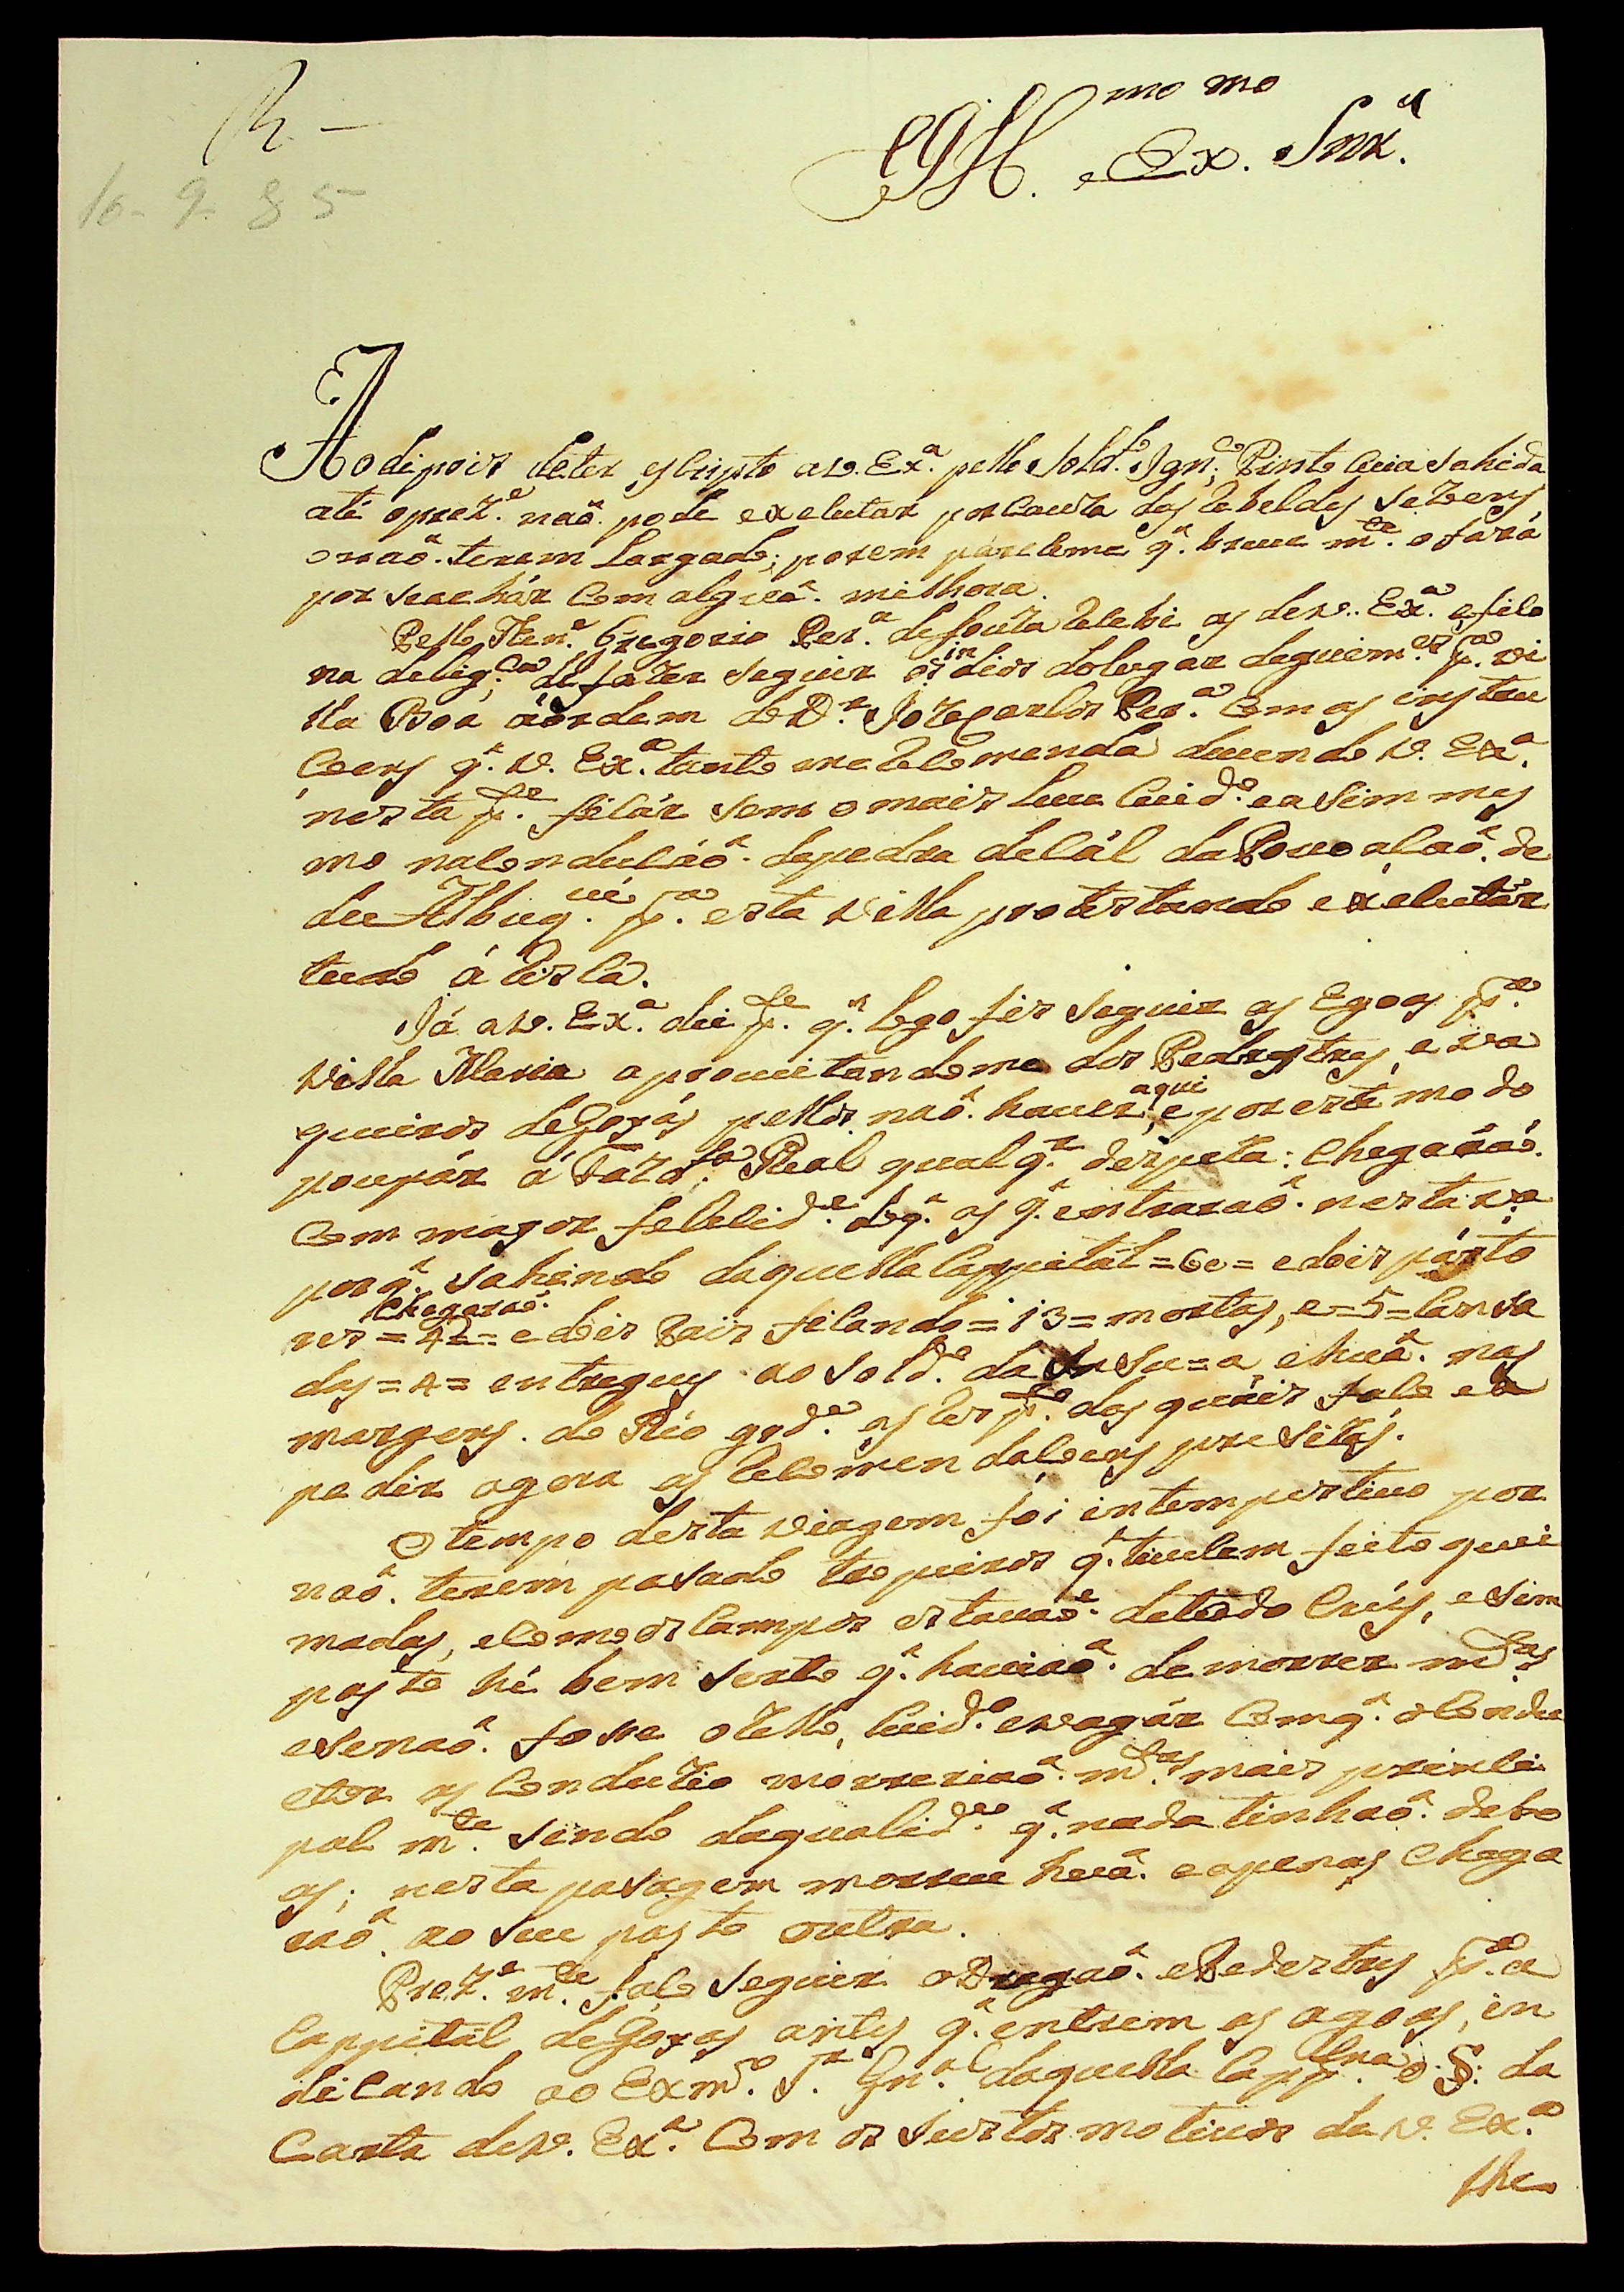 R.
10-9-85
Ill.mo e Ex.mo Snr.
Ao dipois deter escripto a V. Ex.ª pello Sold.º Ign.co Pinto Cuia sahida
até oprez.e naõ pode executar por Cauza das rebeldes Sezens
onaõ terem Largado; porem pareceme q.̃ breve m.te o fará
por seachár Com algũa milhora.
Pello Ten.e Gregorio Per.ª deSouza recebi as de V. Ex.ª e fico
na delig.ca de fazer seguir os indios dolugar deguimes p.ª vi
lla Boa áordem de D.r Joze Carlos Per.ª Com as instru
coens q.̃ V. Ex.ª tanto me recomenda devendo V. Ex.ª
nesta p.te ficár sem omais leve Cuid.º e asim mes
mo naconducáõ dapedra decál da Povoacaõ de
de Albuq.ue p.ª esta Villa protestando executár
tudo á risca.
Já a V. Ex.ª dei p.te q.̃ logo fis seguir as Egoas p.ª
Villa Maria aproveitandome dos Pedestres, e va
queiros deGoyás pellos naõ haver aqui, e por este modo
poupár á Fazd.ª Real qualq.r despeza: Chegáraõ
Com mayor felecid.e doq.̃ as q.̃ entraraõ nesta ve
porq.̃ sahindo daquella Cappital = 60 = edois pásto
res Chegaraõ = 42 = e dois Pais ficando = 13 = mortas, e = 5 = Cansa
das = 4 = entregues ao Sold.º da Insu = a, ehũa nas
margens do Rio grd.e as resp.to das quáis faco ea
pedir agora as recomendacoens precizas.
O tempo desta viagem foi intempestivo por
naõ terem pasado tropeiros q.̃ tivecem feito quei
madas, ecomo os Campos estavaõ detodo Crús, e sim
pasto hé bem serto q.̃ haviaõ de morrer m.tas
esenaõ fosse ozello, Cuid.º evagár Comq.̃ o Condu
ctor as Conduzio morreriaõ m.tas mais princi
pal m.te sendo daqualid.e q.̃ nada tinhaõ de bo
as; nesta pasagem morreu hũa eapenas Chega
raõ ao seu pasto outra.
Prez.e m.te faco seguir o Dragaõ e Pedestres p.ª a
Cappital deGoyas antes q.̃ entrem as agoas, in
dicando ao Exm.º S.r Gn.al daquella Capp.nia o §. da
Carta de V. Ex.ª Com os Justos motivos de V. Ex.ª
lhe